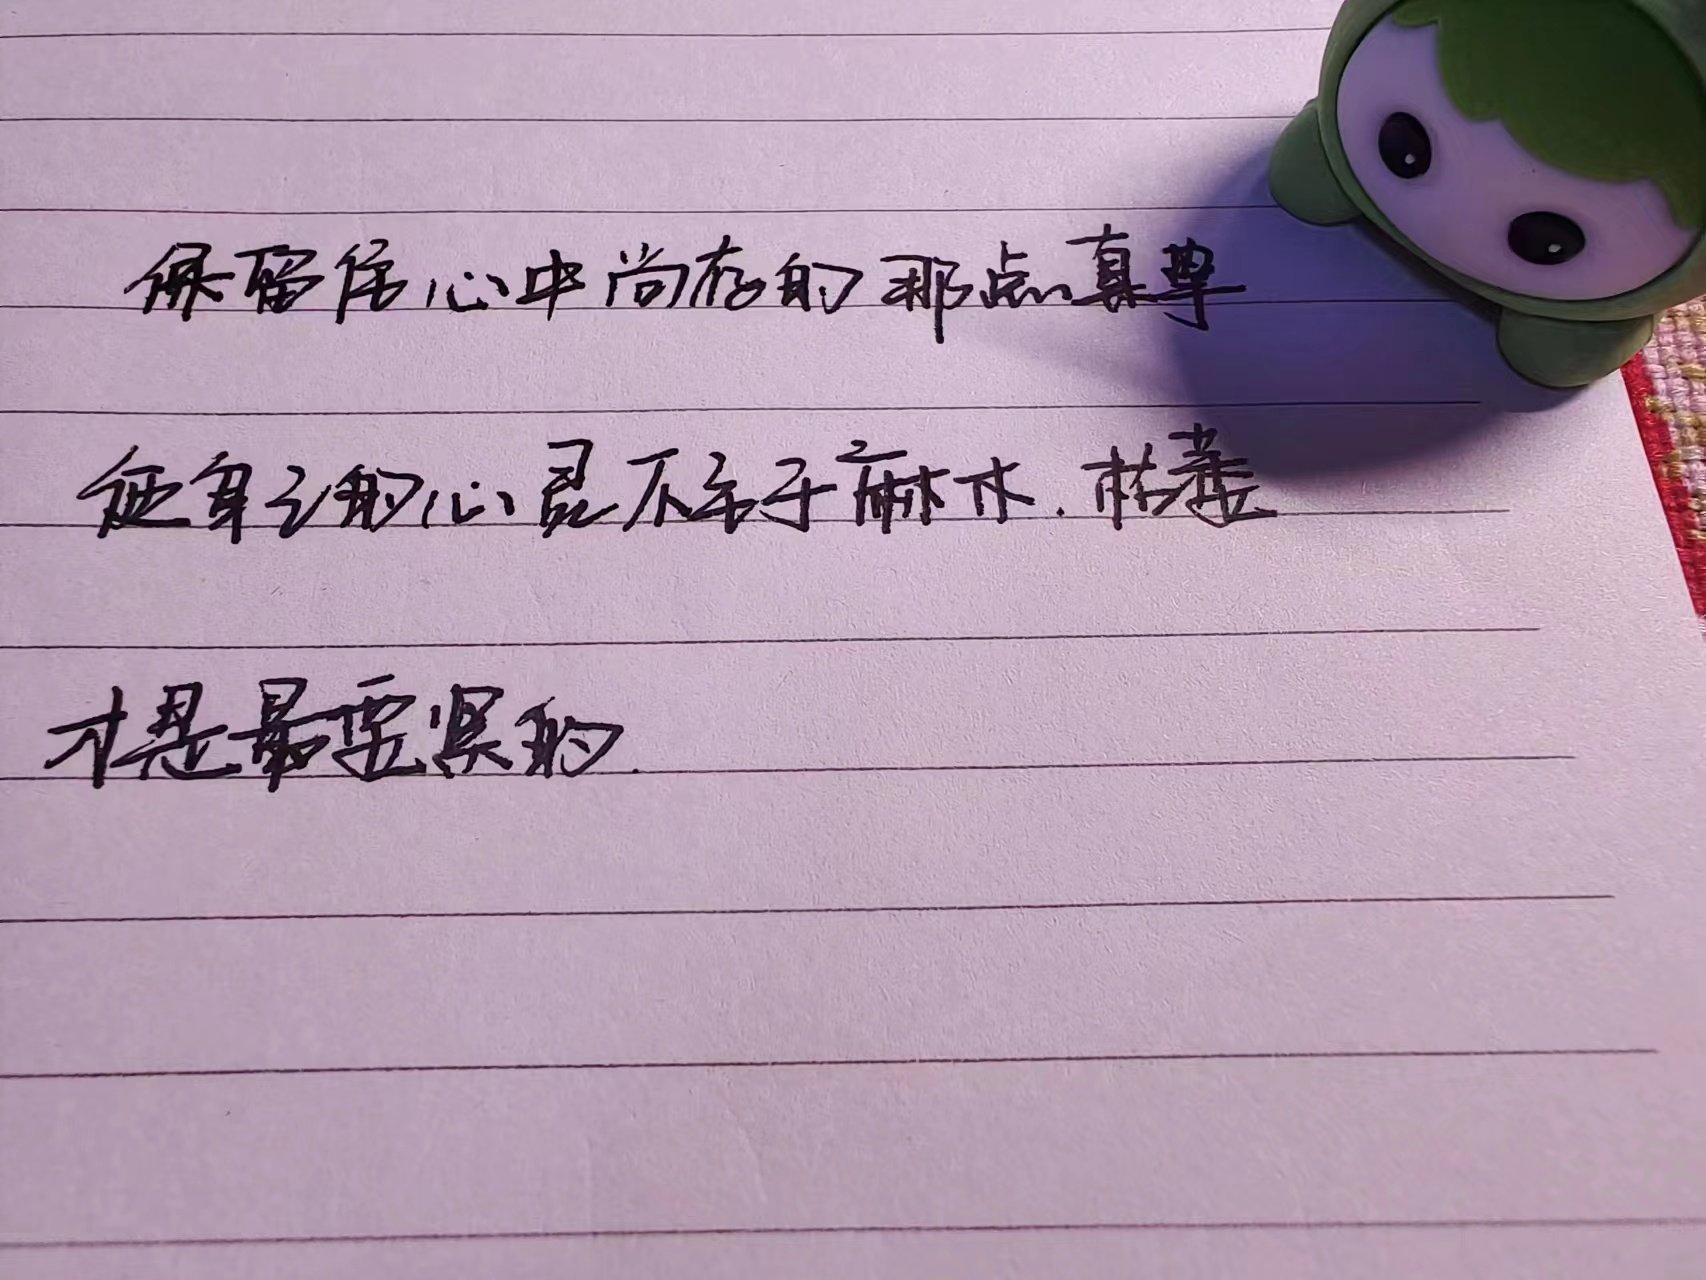 保留住心中尚存的那点真挚
使自己的心灵不至于麻木.枯萎
才是最要紧的.